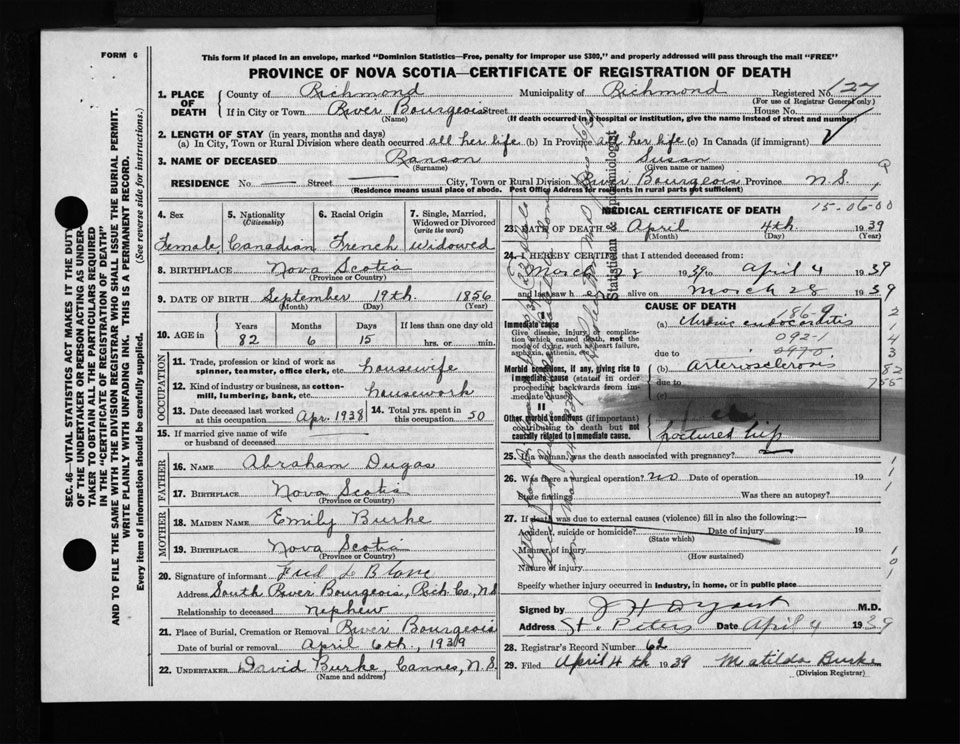 FORM 6
This form if placed in an envelope, marked "Dominion Statistics—Free, penalty for improper use $300," and properly addressed will pass through the mail "FREE"
PROVINCE OF NOVA SCOTIA—CERTIFICATE OF REGISTRATION OF DEATH
1. PLACE OF DEATH County of Richmond Municipality of Richmond Registered No. 127
(For use of Registrar General only)
If in City or Town River Bourgeois Street House No.
(Name) (If death occurred in a hospital or institution, give the name instead of street and number)
2. LENGTH OF STAY (in years, months and days)
(a) In City, Town or Rural Division where death occurred all her life (b) In Province all her life (c) In Canada (if immigrant)
3. NAME OF DECEASED Ranson Susan
(Surname) (Given name or names)
RESIDENCE No. — Street — City, Town or Rural Division River Bourgeois Province N.S.
(Residence means usual place of abode. Post Office Address for residents in rural parts not sufficient)
4. Sex 5. Nationality (Citizenship) 6. Racial Origin 7. Single, Married, Widowed or Divorced (write the word)
Female Canadian French widowed
8. BIRTHPLACE Nova Scotia
(Province or Country)
9. DATE OF BIRTH September 19th. 1856
(Month) (Day) (Year)
10. AGE in Years Months Days If less than one day old
82 6 15 hrs. or min.
OCCUPATION
11. Trade, profession or kind of work as spinner, teamster, office clerk, etc. housewife
12. Kind of industry or business, as cotton-mill, lumbering, bank, etc. housework
13. Date deceased last worked at this occupation Apr. 1938 14. Total yrs. spent in this occupation 50
15. If married give name of wife or husband of deceased
FATHER
16. NAME Abraham Dugas
17. BIRTHPLACE Nova Scotia
(Province or Country)
MOTHER
18. MAIDEN NAME Emily Burke
19. BIRTHPLACE Nova Scotia
(Province or Country)
20. Signature of informant
Address South River Bourgeois, Rich. Co., N.S.
Relationship to deceased nephew
21. Place of Burial, Cremation or Removal River Bourgeois
Date of burial or removal April 6th, 1939
22. UNDERTAKER David Burke, Cannes, N.S.
(Name and address)
MEDICAL CERTIFICATE OF DEATH 15-06-00
23. DATE OF DEATH April 4th. 1939
(Month) (Day) (Year)
24. I HEREBY CERTIFY that I attended deceased from:
March 28 1939 to April 4 1939
and last saw h alive on March 28 1939
CAUSE OF DEATH
Immediate cause
Give disease, injury or complication which caused death, not the mode of dying, such as heart failure, asphyxia, asthenia,
(a) Chronic endocarditis
092-1
due to
Morbid conditions, if any, giving rise to immediate cause (stated in order proceeding backwards from immediate cause)
(b) Arteriosclerosis
due to
(c)
II
Other morbid conditions (if important) contributing to death but not causally related to immediate cause.
fractured hip
25. If a woman, was the death associated with pregnancy?
26. Was there a surgical operation? no Date of operation 19
State findings Was there an autopsy?
27. If death was due to external causes (violence) fill in also the following:—
Accident, suicide or homicide? Date of injury 19
(State which)
Manner of injury
(How sustained)
Nature of injury
Specify whether injury occurred in industry, in home, or in public place
Signed by M.D.
Address St. Peters Date April 4 1939
28. Registrar's Record Number 62
29. Filed April 4th 1939 Matilda Burke
(Division Registrar)
Statistician &
SEC. 46—VITAL STATISTICS ACT MAKES IT THE DUTY
OF THE UNDERTAKER OR PERSON ACTING AS UNDER-
TAKER TO OBTAIN ALL THE PARTICULARS REQUIRED
IN THE "CERTIFICATE OF REGISTRATION OF DEATH"
AND TO FILE THE SAME WITH THE DIVISION REGISTRAR WHO SHALL ISSUE THE BURIAL PERMIT.
WRITE PLAINLY WITH UNFADING INK. THIS IS A PERMANENT RECORD.
Every item of information should be carefully supplied. (See reverse side for instructions.)